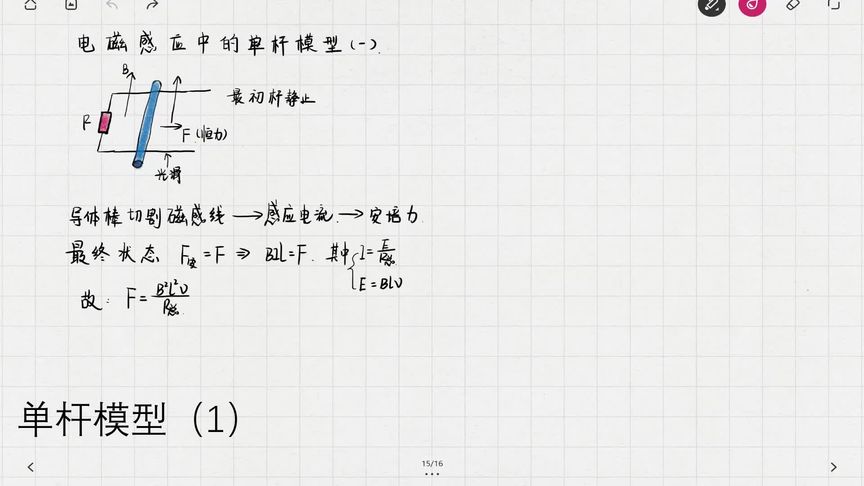 电磁感应中的单杆模型(一).
B
最初杆静止
R
F (恒力)
光滑
导体棒切割磁感线→感应电流→安培力
最终状态 F安=F ⇒ BIL=F. 其中 { I=E/R总
E=BLv
故: F=B²L²v/R总
单杆模型（1）
15/16